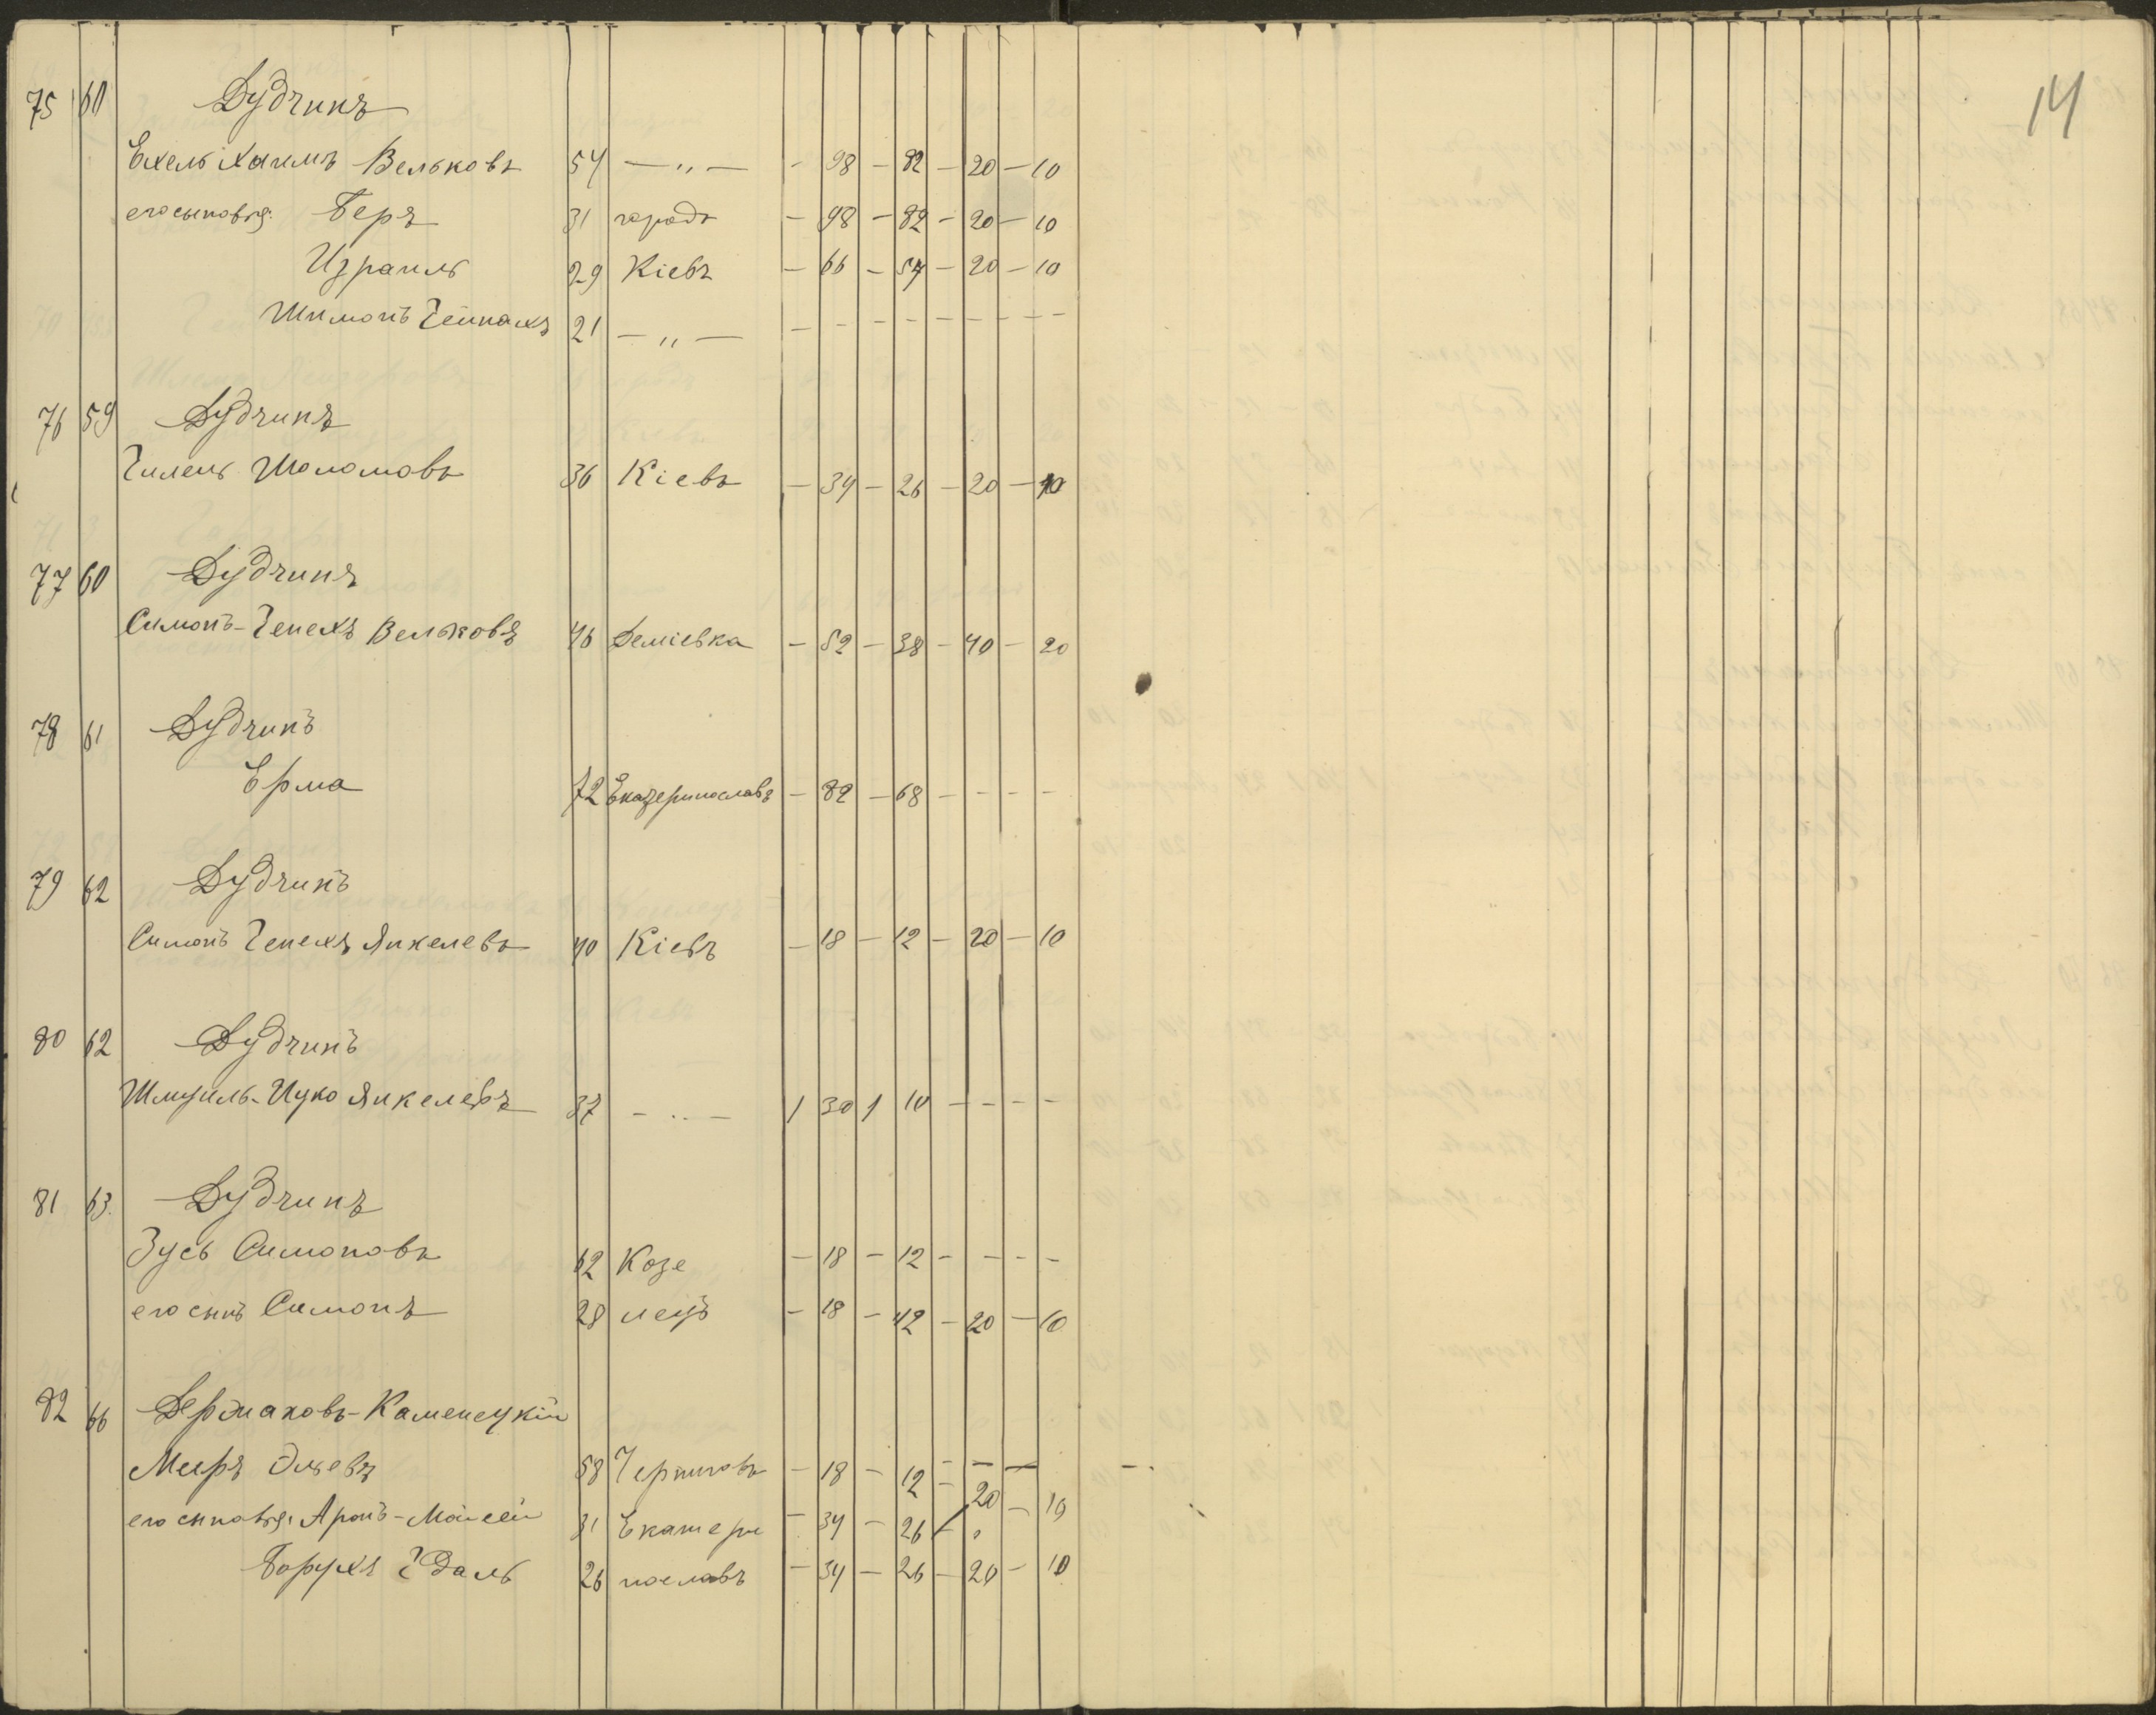 14
75 60 Дудчинъ
Ехель Хаимъ Вельковъ 54 — " — - 98 - 82 - 20 - 10
его сыновья: Беръ 31 городъ - 98 - 82 - 20 - 10
Израиль 29 Кіевъ - 66 - 54 - 20 - 10
Шимонъ 21 — " — - - - - - - - -
76 59 Дудчинъ
Шоломовъ 36 Кіевъ - 34 - 26 - 20 - 10
77 60 Дудчинъ
Симонъ-Генехъ Вельковъ 46 Деміевка - 52 - 38 - 40 - 20
78 61 Дудчинъ
Ерма 72 Екатеринославъ - 82 - 68 - - - -
79 62 Дудчинъ
Симонъ Генехъ Янкелевъ 40 Кіевъ - 18 - 12 - 20 - 10
80 62 Дудчинъ
Шмуиль-Ицко Янкелевъ 37 - " - 1 30 1 10 - - - -
81 63. Дудчинъ
Зусь Симоновъ 62 Козе - 18 - 12 - - - -
его сынъ Симонъ 28 лецъ - 18 - 12 - 20 - 10
82 66 Держаховъ-Каменецкій
Мееръ 58 Черниговъ - 18 - 12 - - -
его сыновья: Аронъ-Мойсей 31 Екатери - 34 - 26 - 20 - 10
Борухъ Гдаль 26 нославъ - 34 - 26 - 20 - 10